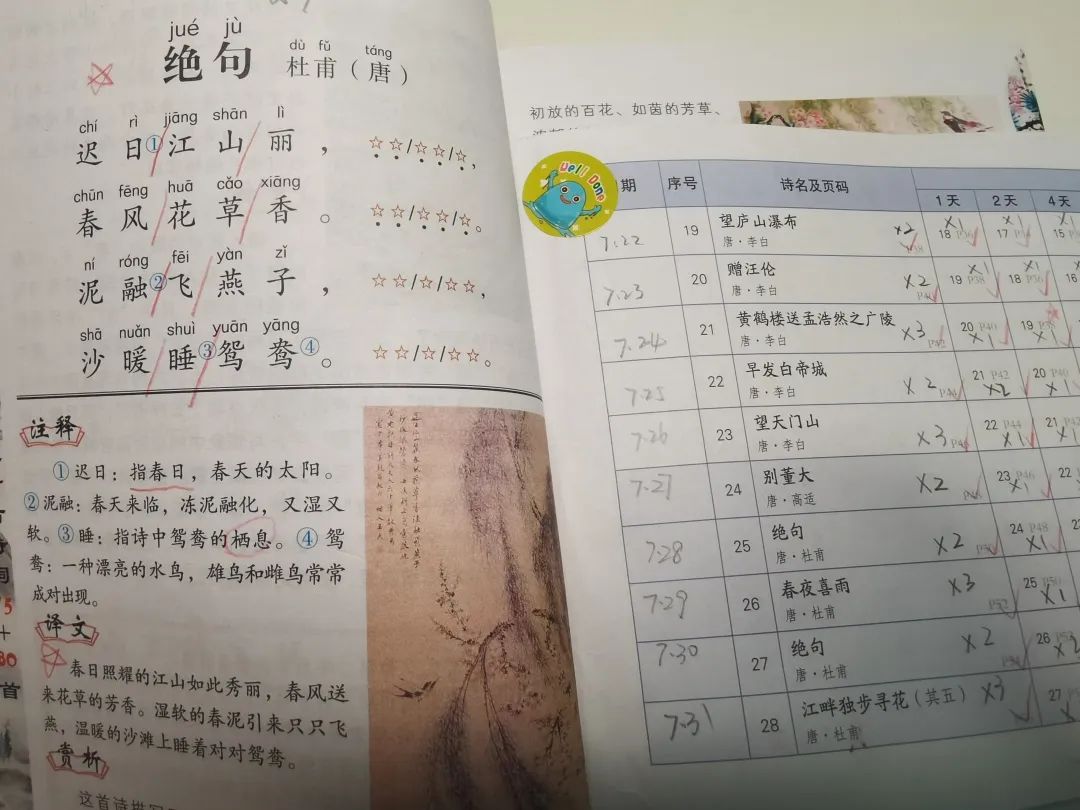 jué jù
绝句
dù fǔ táng
杜甫（唐）
chí rì jiāng shān lì
迟日①江山丽，
☆☆/☆☆/☆，
chūn fēng huā cǎo xiāng
春风花草香。
☆☆/☆☆/☆。
ní róng fēi yàn zǐ
泥融②飞燕子，
☆☆/☆/☆☆，
shā nuǎn shuì yuān yāng
沙暖睡③鸳鸯④。
☆☆/☆/☆☆。
注释
①迟日：指春日，春天的太阳。
②泥融：春天来临，冻泥融化，又湿又
软。③睡：指诗中鸳鸯的栖息。④鸳
鸯：一种漂亮的水鸟，雄鸟和雌鸟常常
成对出现。
译文
春日照耀的江山如此秀丽，春风送
来花草的芳香。湿软的春泥引来只只飞
燕，温暖的沙滩上睡着对对鸳鸯。
赏析
初放的百花、如茵的芳草、
Well Done
期 序号 诗名及页码 1天 2天 4天
7.22 19 望庐山瀑布 ×2 18 ×1 17 ×1 15
唐·李白
7.23 20 赠汪伦 ×2 19 P38 ×1 18 P36 ×1 16
唐·李白
7.24 21 黄鹤楼送孟浩然之广陵 ×3 20 P40 ×1 19 ×1
唐·李白
7.25 22 早发白帝城 ×2 P44 21 P42 ×2 20 P40 ×1
唐·李白
7.26 23 望天门山 ×3 22 P44 ×1 21 ×1
唐·李白
7.27 24 别董大 ×2 23 P46 ×1 22
唐·高适
7.28 25 绝句 ×2 24 P48 ×1 23
唐·杜甫
7.29 26 春夜喜雨 ×3 P52 25 P50 ×1
唐·杜甫
7.30 27 绝句 ×2 26 ×2
唐·杜甫
7.31 28 江畔独步寻花（其五） ×3 27
唐·杜甫